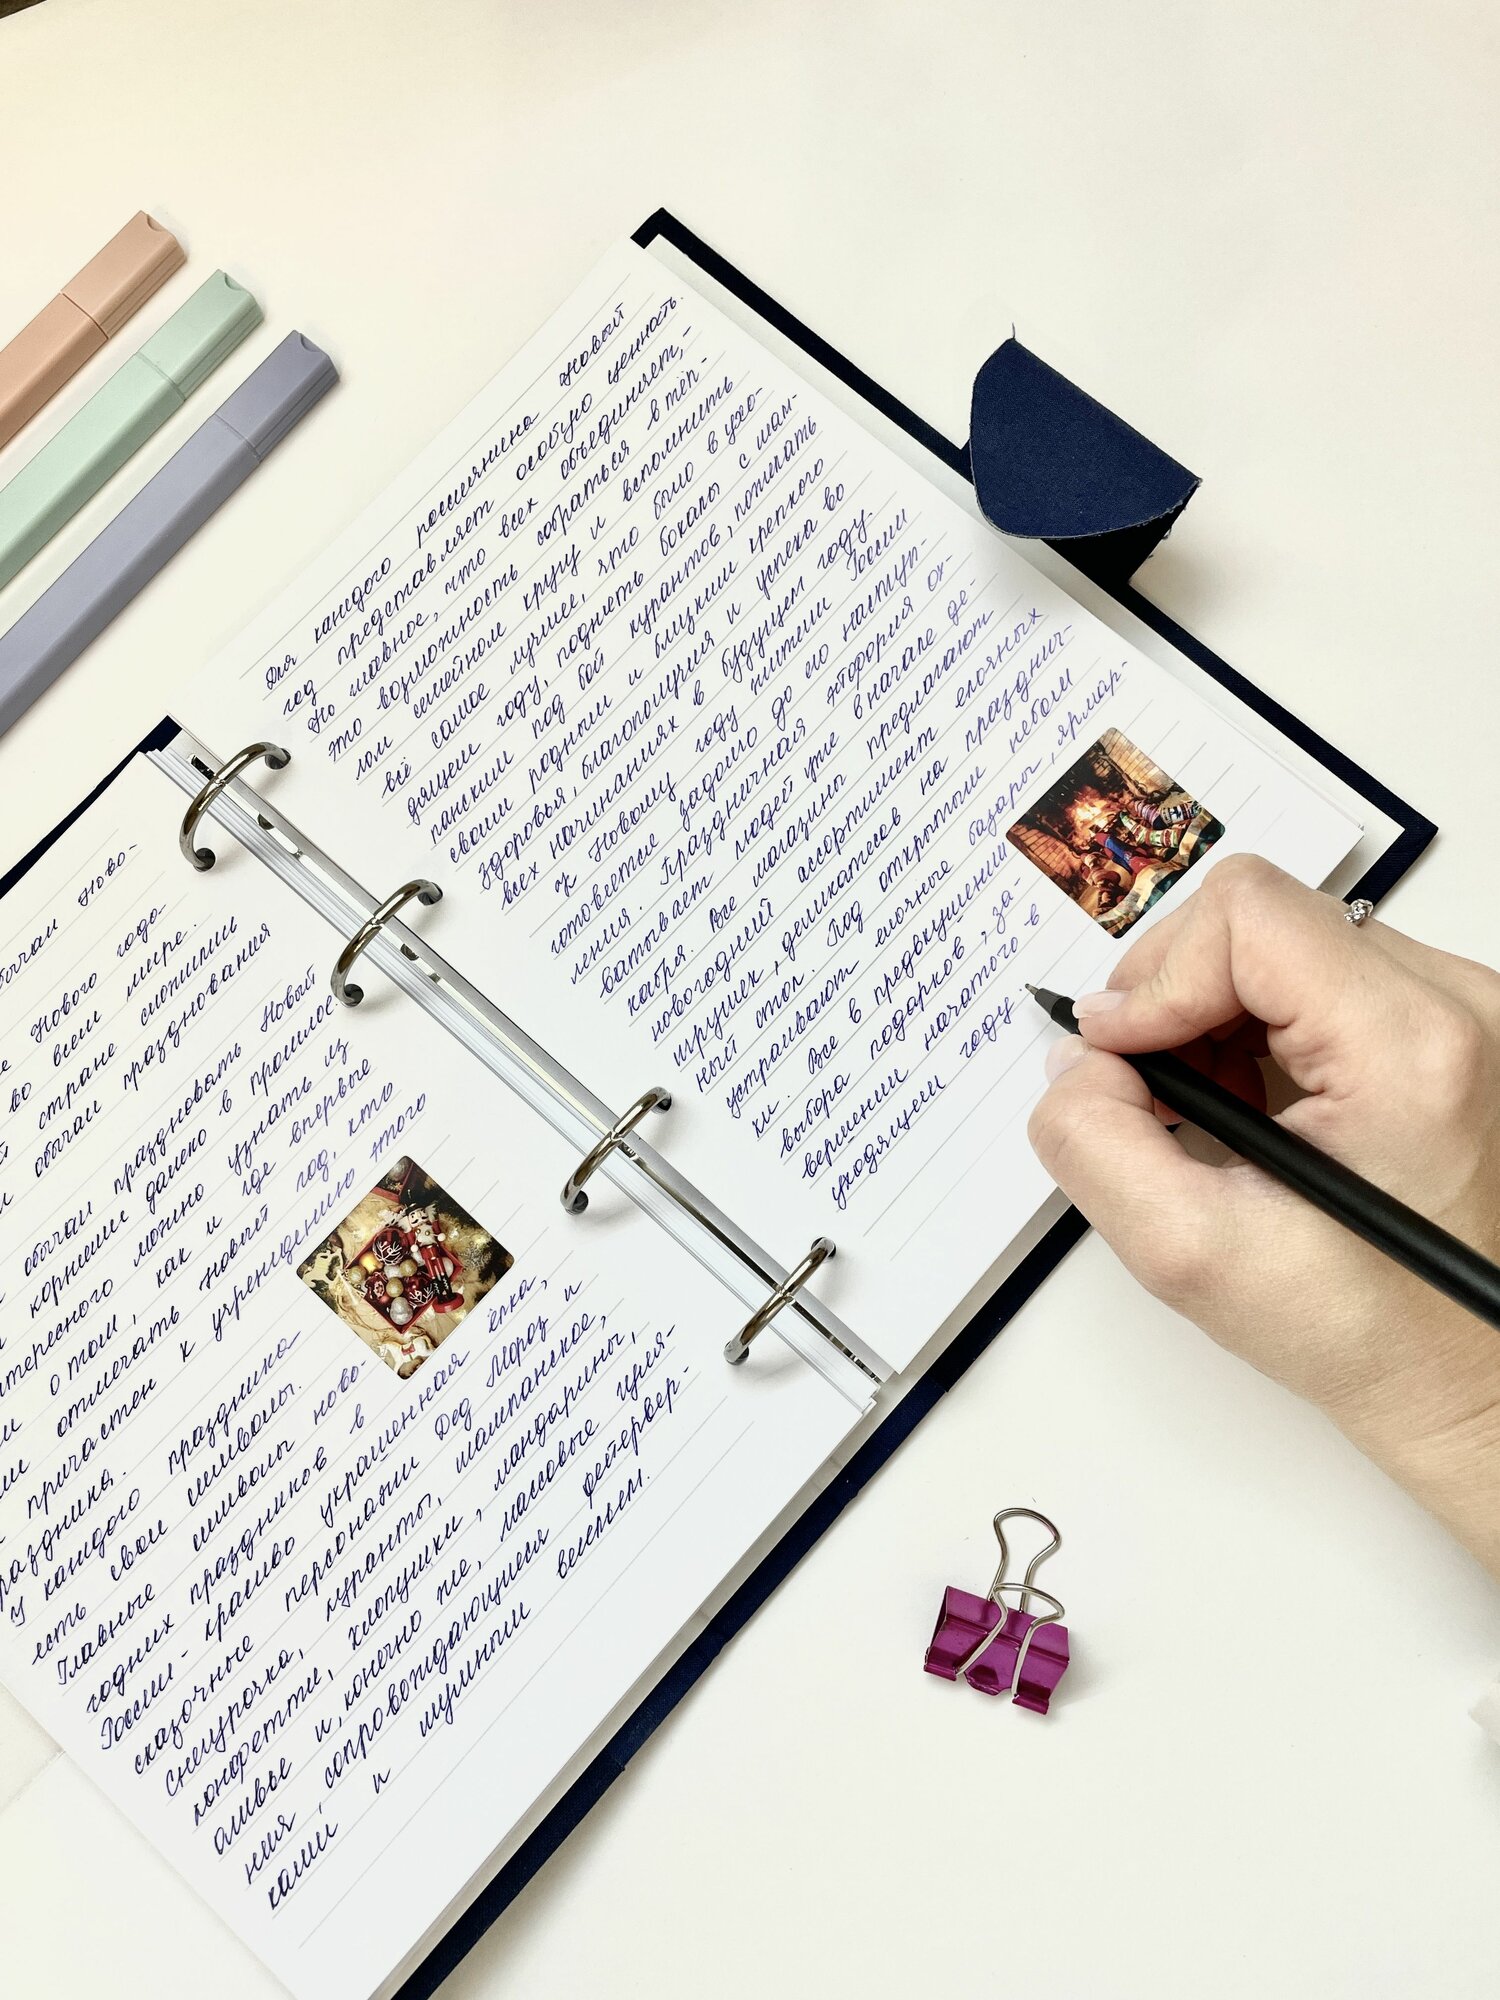 обычаи Ново-
Нового года
во всем мире.
стране сложились
обычаи празднования
обычаи праздновать Новый
корнями далеко в прошлое
интересного можно узнать из
о том, как и где впервые
отмечать Новый год, кто
причастен к учреждению этого
праздника.
У каждого праздника
есть свои символы.
Главные символы ново-
годних праздников в
России - красиво украшенная ёлка,
сказочные персонажи Дед Мороз и
Снегурочка, куранты, шампанское,
конфетти, хлопушки, мандарины,
оливье и, конечно же, массовые гуля-
ния, сопровождающиеся фейервер-
ками и шумным весельем.
Для каждого россиянина Новый
год представляет особую ценность.
Но главное, что всех объединяет,-
это возможность собраться в тёп-
лом семейном кругу и вспомнить
всё самое лучшее, что было в ухо-
дящем году, поднять бокалы с шам-
панским под бой курантов, пожелать
своим родным и близким крепкого
здоровья, благополучия и успеха во
всех начинаниях в будущем году.
К Новому году жители России
готовятся задолго до его наступ-
ления. Праздничная эйфория ох-
ватывает людей уже в начале де-
кабря. Все магазины предлагают
новогодний ассортимент елочных
игрушек, деликатесов на празднич-
ный стол. Под открытым небом
устраивают елочные базары, ярмар-
ки. Все в предвкушении
выбора подарков, за-
вершении начатого в
уходящем году.